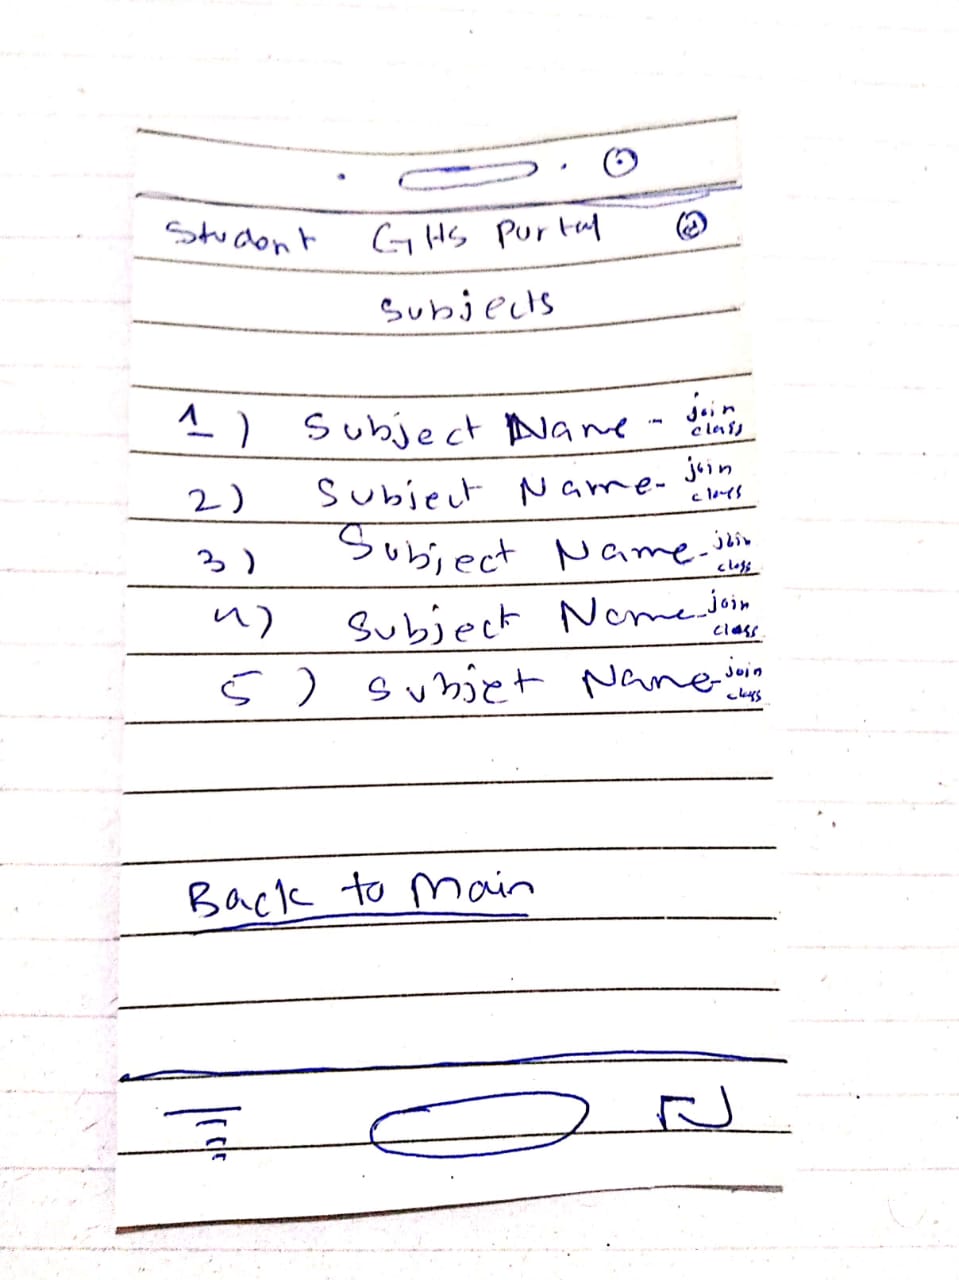 Student GHS Portal
Subjects
1) Subject Name - join class
2) Subject Name - join class
3) Subject Name - join class
4) Subject Name - join class
5) Subjet Name - join class
Back to Main